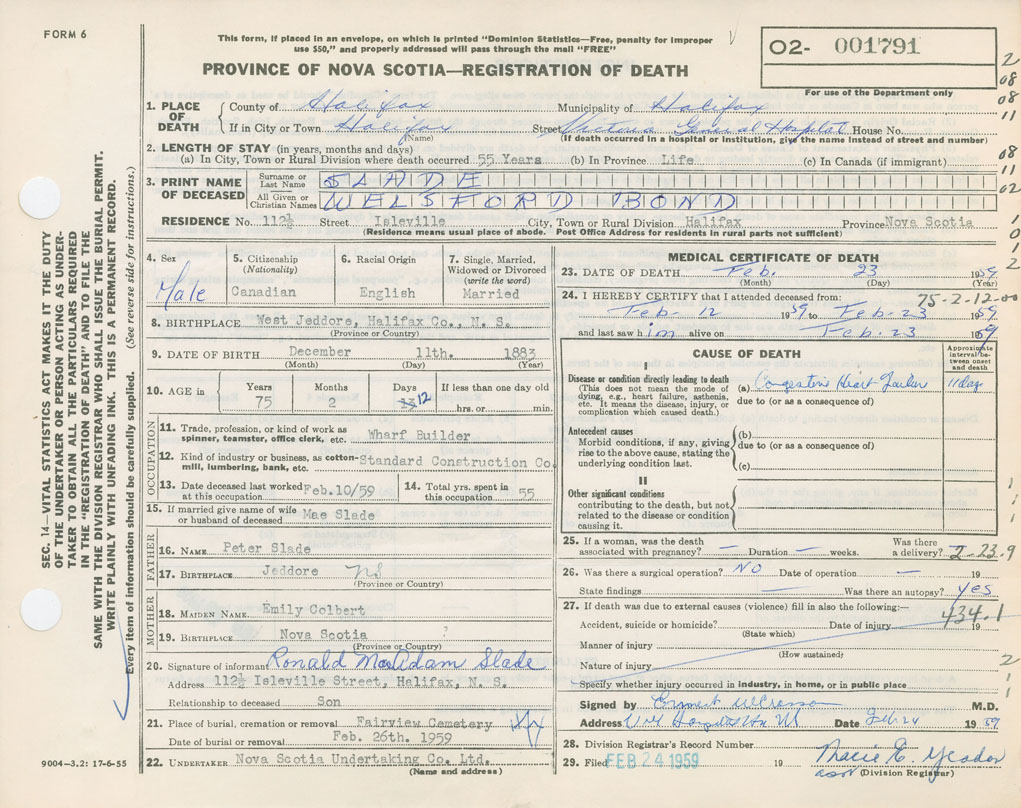 FORM 6
This form, if placed in an envelope, on which is printed "Dominion Statistics—Free, penalty for improper
use $50," and properly addressed will pass through the mail "FREE"
O2- 001791
PROVINCE OF NOVA SCOTIA—REGISTRATION OF DEATH
For use of the Department only
2
08
08
11
08
11
02
1
0
1
2
1. PLACE OF DEATH
County of Halifax Municipality of Halifax
If in City or Town Halifax Street Victoria General Hospital House No.
(Name) (If death occurred in a hospital or institution, give the name instead of street and number)
2. LENGTH OF STAY (in years, months and days)
(a) In City, Town or Rural Division where death occurred 55 Years (b) In Province Life (c) In Canada (if immigrant)
3. PRINT NAME OF DECEASED
Surname or Last Name SLADE
All Given or Christian Names WELSFORD BOND
RESIDENCE No. 112½ Street Isleville City, Town or Rural Division Halifax Province Nova Scotia
(Residence means usual place of abode. Post Office Address for residents in rural parts not sufficient)
SEC. 14—VITAL STATISTICS ACT MAKES IT THE DUTY
OF THE UNDERTAKER OR PERSON ACTING AS UNDER-
TAKER TO OBTAIN ALL THE PARTICULARS REQUIRED
IN THE "REGISTRATION OF DEATH" AND TO FILE THE
SAME WITH THE DIVISION REGISTRAR WHO SHALL ISSUE THE BURIAL PERMIT.
WRITE PLAINLY WITH UNFADING INK. THIS IS A PERMANENT RECORD.
Every item of information should be carefully supplied. (See reverse side for instructions.)
4. Sex
Male
5. Citizenship
(Nationality)
Canadian
6. Racial Origin
English
7. Single, Married,
Widowed or Divorced
(write the word)
Married
8. BIRTHPLACE West Jeddore, Halifax Co., N. S.
(Province or Country)
9. DATE OF BIRTH December 11th. 1883
(Month) (Day) (Year)
10. AGE in
Years 75
Months 2
Days 12
If less than one day old
hrs. or min.
OCCUPATION
11. Trade, profession, or kind of work as
spinner, teamster, office clerk, etc. Wharf Builder
12. Kind of industry or business, as cotton-
mill, lumbering, bank, etc. Standard Construction Co.
13. Date deceased last worked
at this occupation Feb.10/59
14. Total yrs. spent in
this occupation 55
15. If married give name of wife
or husband of deceased Mae Slade
FATHER
16. NAME Peter Slade
17. BIRTHPLACE Jeddore NS
(Province or Country)
MOTHER
18. MAIDEN NAME Emily Colbert
19. BIRTHPLACE Nova Scotia ?
(Province or Country)
20. Signature of informant Ronald MacAdam Slade
Address 112½ Isleville Street, Halifax, N. S.
Relationship to deceased Son
21. Place of burial, cremation or removal Fairview Cemetery
Date of burial or removal Feb. 26th. 1959
22. UNDERTAKER Nova Scotia Undertaking Co. Ltd.
(Name and address)
9004-3.2: 17-6-55
MEDICAL CERTIFICATE OF DEATH
23. DATE OF DEATH Feb. 23 1959
(Month) (Day) (Year)
24. I HEREBY CERTIFY that I attended deceased from: 75-2-12-00
Feb. 12 1959 to Feb. 23 1959
and last saw him alive on Feb. 23 1959
CAUSE OF DEATH
Approximate
interval be-
tween onset
and death
I
Disease or condition directly leading to death
(This does not mean the mode of
dying, e.g., heart failure, asthenia,
etc. It means the disease, injury, or
complication which caused death.)
(a) Congestive Heart Failure 11 days
due to (or as a consequence of)
Antecedent causes
Morbid conditions, if any, giving
rise to the above cause, stating the
underlying condition last.
(b)
due to (or as a consequence of)
(c)
II
Other significant conditions
contributing to the death, but not
related to the disease or condition
causing it.
1
1
25. If a woman, was the death
associated with pregnancy? — Duration — weeks. Was there
a delivery? 2-23.9
26. Was there a surgical operation? NO Date of operation — 19
State findings — Was there an autopsy? yes
27. If death was due to external causes (violence) fill in also the following:—
434.1
Accident, suicide or homicide? Date of injury 19
(State which)
Manner of injury
(How sustained)
Nature of injury
2
1
1
Specify whether injury occurred in industry, in home, or in public place
Signed by M.D.
Address Date Feb 24 1959
28. Division Registrar's Record Number
29. Filed FEB 24 1959 19
(Division Registrar)